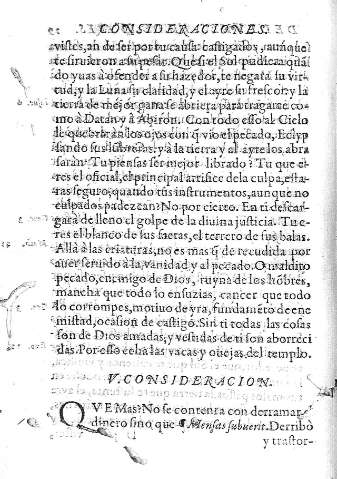 CONSIDERACIONES.
vistes, an de ser por tu causa castigados, aunque
te siruieron a su pesar. Que si el Sol
do yuas à ofender a su hazedor, te negara su vir-
tud, y la Luna su claridad, y el ayre su frescor, y la
tierra de mejor gana se abriera para tragarte co-
mo à Datan y à Abiron. Con todo esso al Cielo
se quebraran los ojos con q̃ vio el pecado, Eclyp
sando sus y à la tierra y al ayre los abra
saran. Tu piensas ser mejor librado? Tu que e-
res el oficial, el principal artifice dela culpa, esta-
ras seguro, quando tus instrumentos, aunque no
culpados padezcan? No por cierto. En ti descar-
gara de lleno el golpe de la diuina justicia. Tu e-
res el blanco de sus saetas, el terrero de sus balas.
Alla à las criaturas, no es mas q̃ de recudida por
auer seruido à la vanidad y al pecado. O maldito
pecado, enemigo de Dios, ruyna de los hõbres,
mancha que todo lo ensuzias, cancer que todo
lo corrompes, motiuo de yra, fundamẽto de ene
mistad, ocasion de castigo. Sin ti todas las cosas
son de Dios amadas, y vestidas de ti son aborreci
das. Por esso echa las vacas y ouejas del templo.
V. CONSIDERACION.
QVE Mas? No se contenta con derramar
dinero sino que Mensas subuertit. Derribò
y trastor-